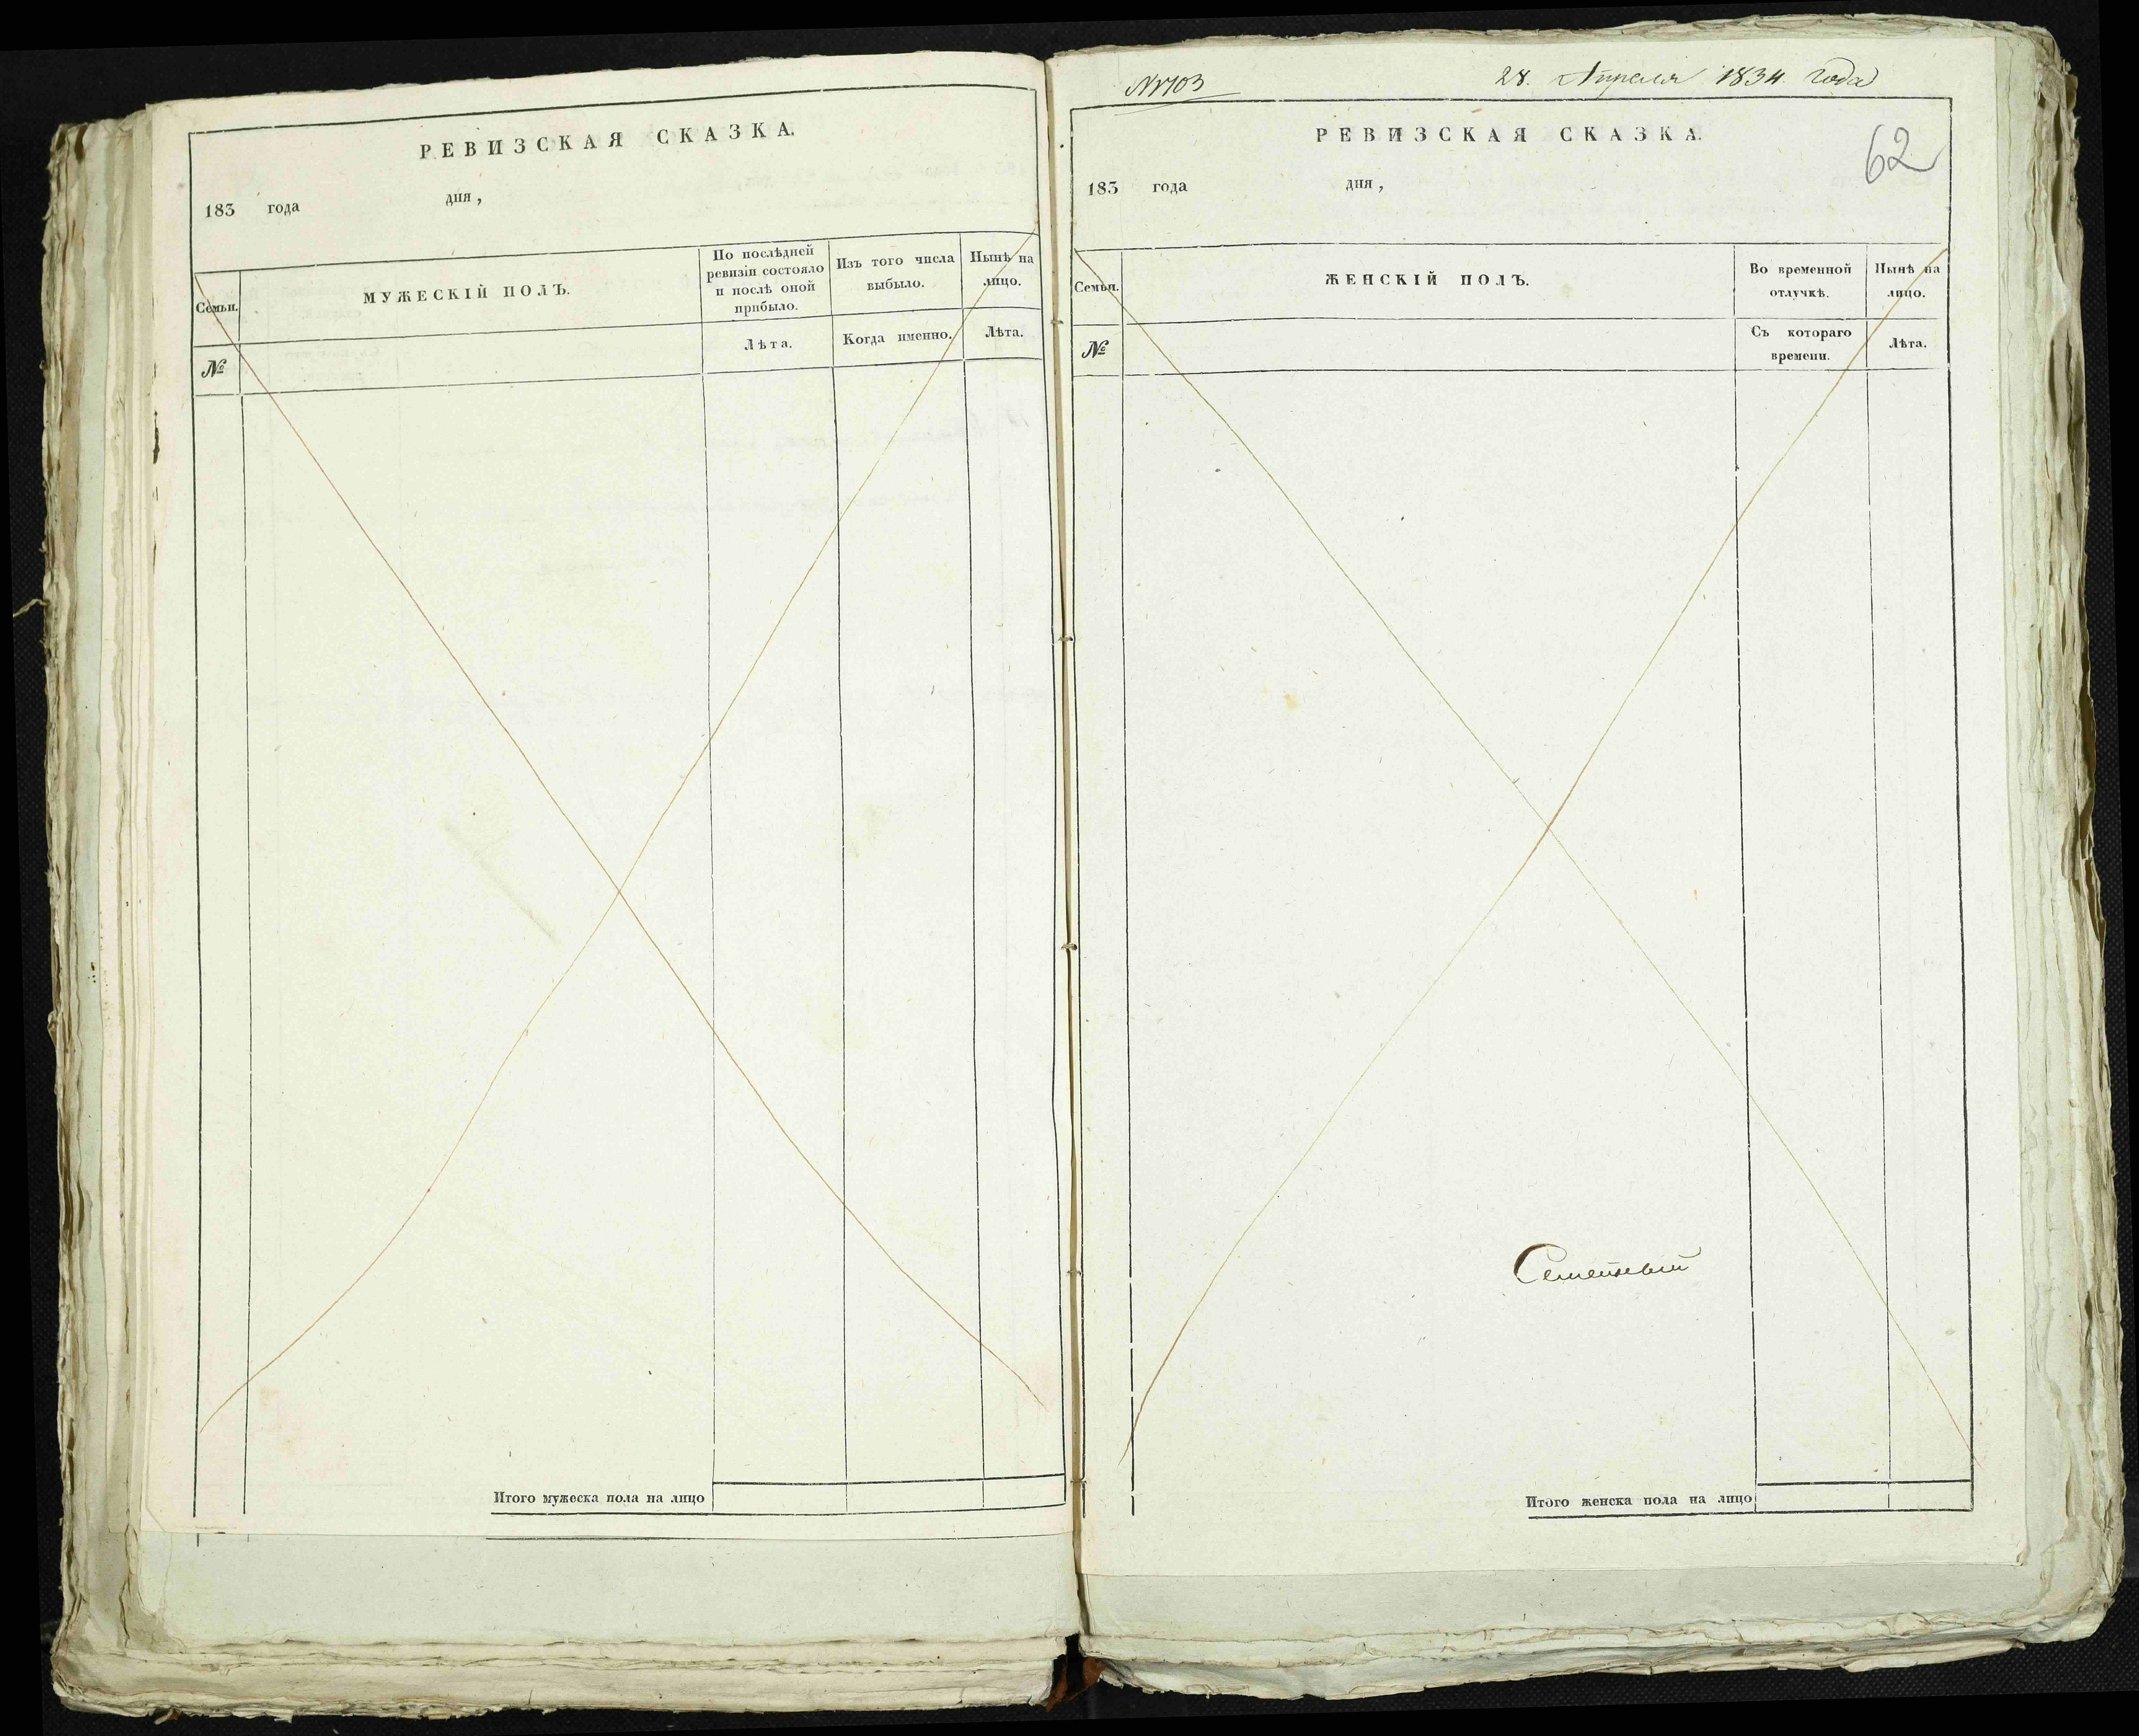 РЕВИЗСКАЯ СКАЗКА.
183 года дня,
Семьи.
МУЖЕСКІЙ ПОЛЪ.
По послѣдней
ревизіи состояло
и послѣ оной
прибыло.
Изъ того числа
выбыло.
Нынѣ на
лицо.
№
Лѣта.
Когда именно.
Лѣта.
Итого мужеска пола на лицо
28. Апреля 1834 года
РЕВИЗСКАЯ СКАЗКА.
62
183 года дня,
Семьи.
ЖЕНСКІЙ ПОЛЪ.
Во временной
отлучкѣ.
Нынѣ на
лицо.
№
Съ котораго
времени.
Лѣта.
Итого женска пола на лицо